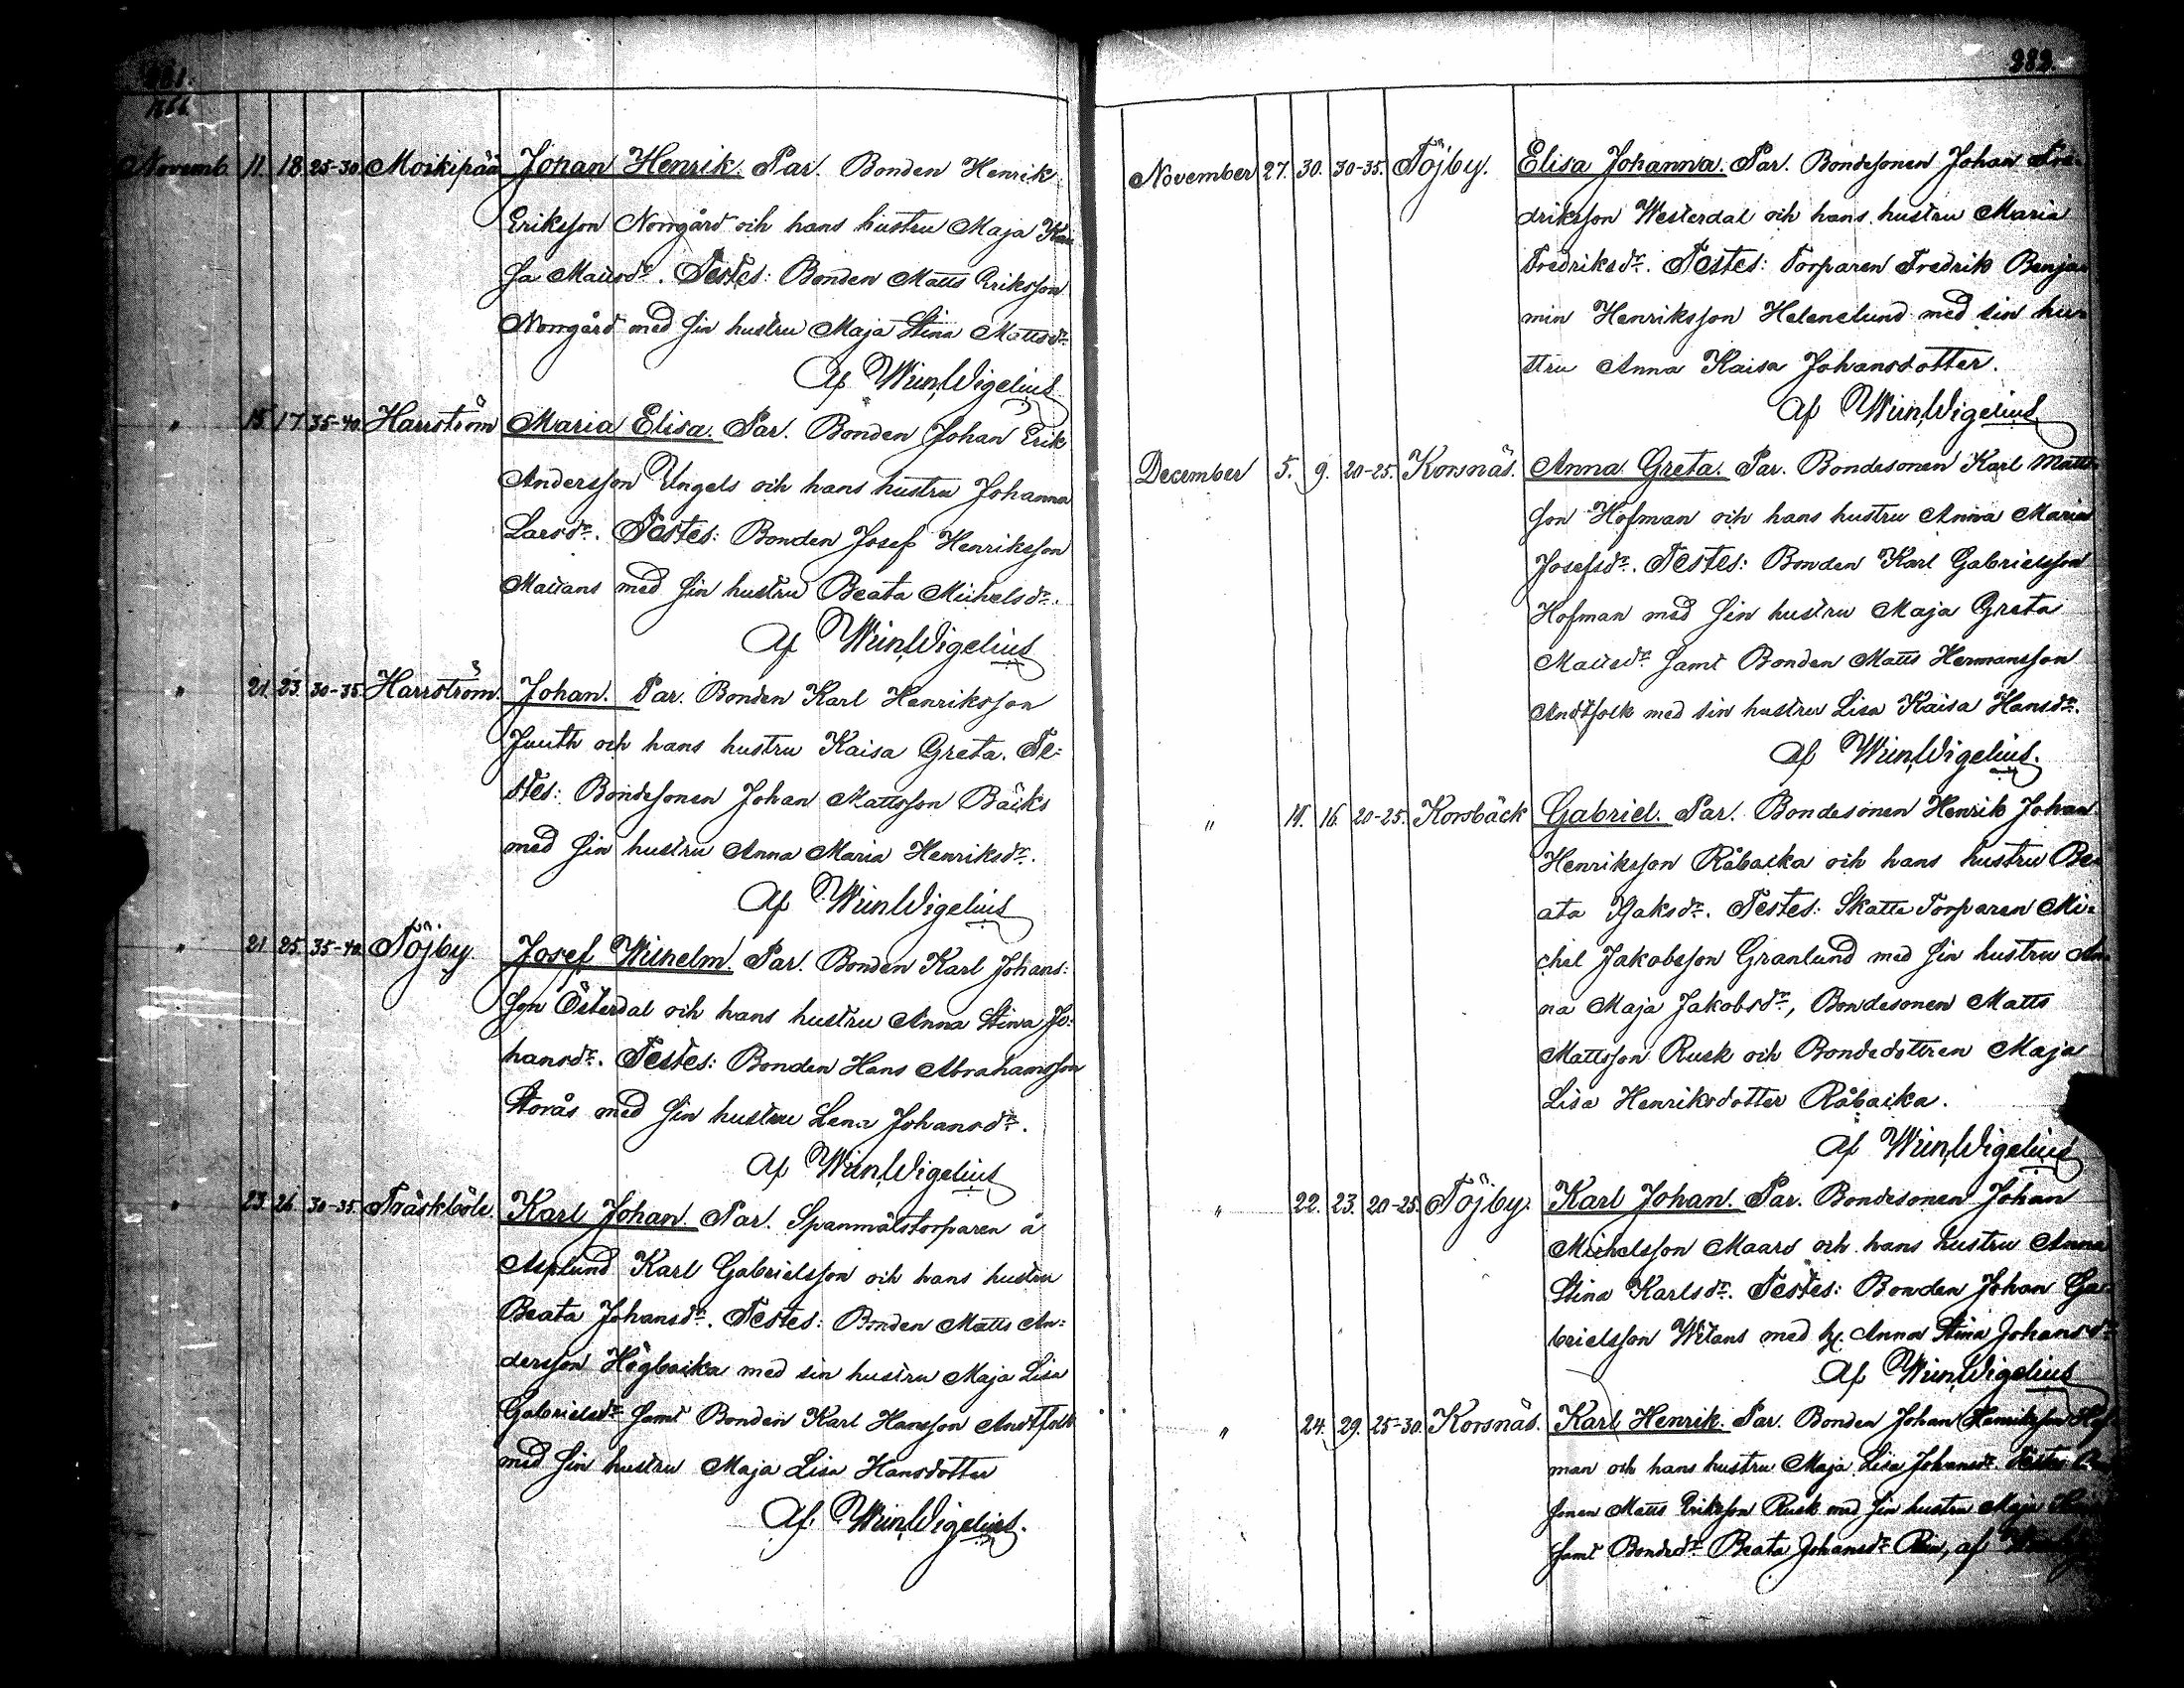 281.
1866
Novemb. 11. 18. 25-30. Moikipää Johan Henrik. Par. Bonden Henrik
Eriksson Norrgård och hans hustru Maja Kai
sa Mattsdr. Testes: Bonden Matts Eriksson
Norrgård med sin hustru Maja Stina Mattsdr.
Af WmWigelius
" 15. 17. 35-40. Harrström Maria Elisa. Par. Bonden Johan Erik
Andersson Ungels och hans hustru Johanna
Larsdr. Testes: Bonden Josef Henriksson
Mattans med sin hustru Beata Michelsdr.
Af WmWigelius
" 21. 23. 30-35. Harrström. Johan. Par. Bonden Karl Henriksson
Juuth och hans hustru Kaisa Greta. Te=
stes: Bondesonen Johan Mattsson Bäcks
med sin hustru Anna Maria Henriksdr.
Af WmWigelius
" 21. 25. 35-40. Töjby. Josef Wilhelm. Par. Bonden Karl Johans=
son Österdal och hans hustru Anna Stina Jo=
hansdr. Testes: Bonden Hans Abrahamsson
Storås med sin hustru Lena Johansdr.
Af WmWigelius
" 23. 26. 30-35. Träskböle. Karl Johan. Par. Spanmålstorparen å
Asplund Karl Gabrielsson och hans hustru
Beata Johansdr. Testes: Bonden Matts An=
dersson Högbacka med sin hustru Maja Lisa
Gabrielsdr samt Bonden Karl Hansson Andtfolk
med sin hustru Maja Lisa Hansdotter
Af WmWigelius.
282.
November 27. 30. 30-35. Töjby. Elisa Johanna. Par. Bondesonen Johan Fre=
driksson Westerdal och hans hustru Maria
Fredriksdr. Testes: Torparen Fredrik Benja=
min Henriksson Helenelund med sin hu=
stru Anna Kaisa Johansdotter.
Af WmWigelius
December 5. 9. 20-25. Korsnäs. Anna Greta. Par. Bondesonen Karl Matts
son Hofman och hans hustru Anna Maria
Josefsdr. Testes: Bonden Karl Gabrielsson
Hofman med sin hustru Maja Greta
Mattsdr samt Bonden Matts Hermansson
Andtfolk med sin hustru Lisa Kaisa Hansdr.
Af WmWigelius.
" 11. 16. 20-25. Korsbäck Gabriel. Par. Bondesonen Henrik Johan
Henriksson Råbacka och hans hustru Be=
ata Isaksdr. Testes: Skatte Torparen Mi=
chel Jakobsson Granlund med sin hustru An=
na Maja Jakobsdr, Bondesonen Matts
Mattsson Rusk och Bondedottren Maja
Lisa Henriksdotter Råbacka.
Af WmWigelius
" 22. 23. 20-25. Töjby. Karl Johan. Par. Bondesonen Johan
Michelsson Maars och hans hustru Anna
Stina Karlsdr. Testes: Bonden Johan Ga=
brielsson Witans med h. Anna Stina Johansdr
Af WmWigelius
" 24. 29. 25-30. Korsnäs. Karl Henrik. Par. Bonden Johan Henriksson Hof
man och hans hustru Maja Lisa Johansdr. Testes
sonen Matts Eriksson Rusk med sin hustru Maja
samt Bondedr Beata Johansdr af